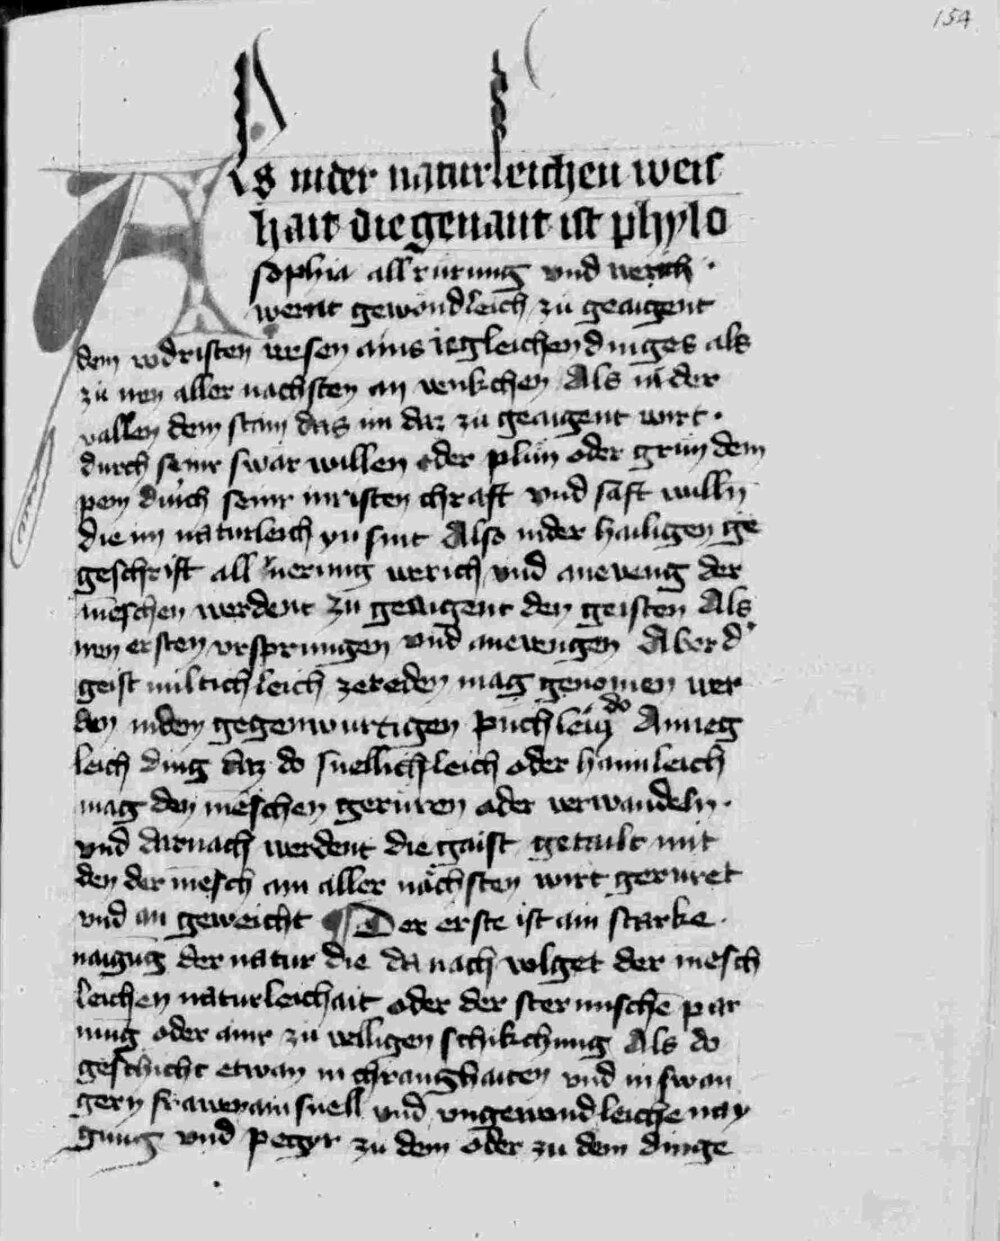 154
Als in der naturleichen weis
hait die genant ist phylo
sophia all rurung vnd werich .
wernt gewondleich zu geaigent
dem vodristen wesen ains iegleichen dinges als
zu irem aller nachsten an wenkchen Als in der
vallen dem stain das im daz zu geaigent wirt .
durch seinr swar willen oder plün oder grün dem
pem durch seinr inristen chraft vnd saft willn
die im naturleich yn sint Also in der hailigen ge
geschrift all rierung werich vnd aneweng der
menschen werdent zu geaigent den geisten Als
iren ersten vrsprungen vnd anewengen Aber d'
geist miltichleich ze reden mag genomen wer
den in dem gegenwurtigen puchlein do Ain ieg
leich ding daz do snellichleich oder haimleich
mag den menschen geruren oder verwandeln .
vnd darnach werdent die gaist getailt mit
den der mensch am aller nachsten wirt geruret
vnd an geweicht ¶ Der erste ist ain starke .
naigung der natur die da nach volget der mensch
leichen naturleichait oder der sternischen par
nung oder ainr zu velligen schikchung Als do
geschicht etwan in chrangkhaiten vnd in swan
gern frawen ain snell vnd vngewondleiche nay
gung vnd pegyr zu dem oder zu dem dinge